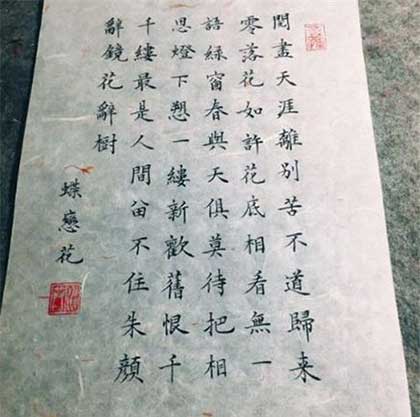 閱盡天涯離別苦不道歸来
零落花如許花底相看無一
語綠窗春與天俱莫待把相
思燈下愬一縷新歡舊恨千
千縷最是人間留不住朱顏
辭鏡花辭樹
蝶戀花